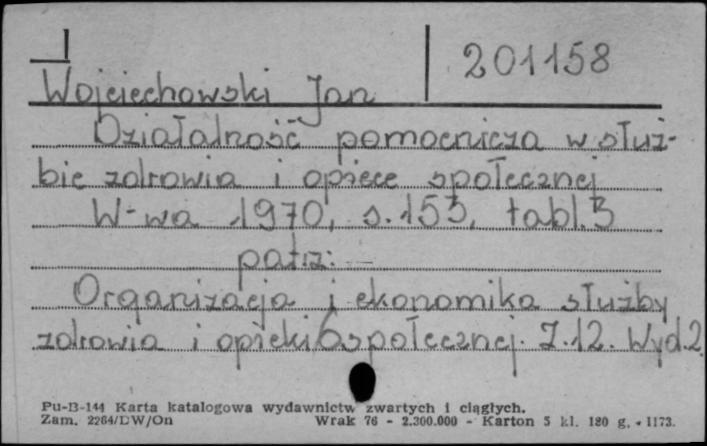 201158
Wojciechowski Jan
Działalność pomocnicza w służ-
bie zdrowia i opiece społecznej
W-wa 1970, s. 153, tabl. 3
patrz:
Organizacja i ekonomika służby
zdrowia i opieki społecznej. Z.12. Wyd.2
Pu-B-144 Karta katalogowa wydawnictw zwartych i ciągłych.
Zam. 2264/DW/On Wrak 76 - 2.300.000 - Karton 5 kl. 180 g. - 1173.